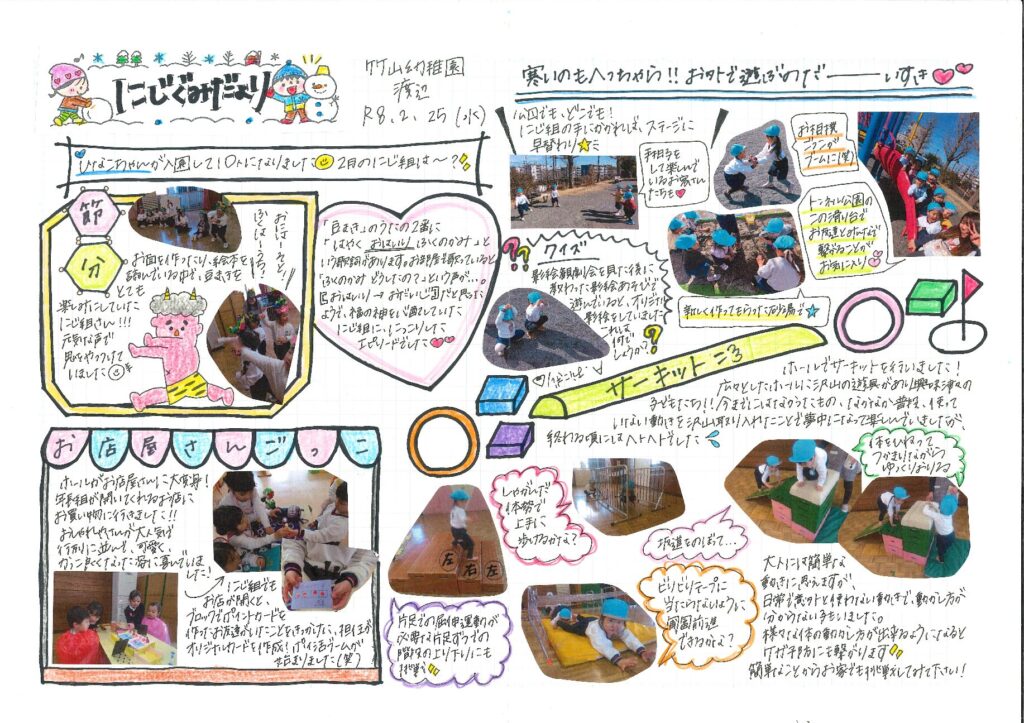 にじぐみだより
竹山幼稚園
渡辺
R8.2.25(水)
ひなこちゃんが入園して10人になりました 2月のにじ組は～?
節分
おにはーそと!
ふくはーうち?
お面を作ったり、絵本を
読んでいる中で、豆まきを
とても
楽しみにしていた
にじ組さん!!!
元気な声で
鬼をやっつけて
いました
「豆まき」のうたの2番に
「はやく おはいり ふくのかみ」と
いう歌詞があります。お部屋で歌っていると
「ふくのかみ どうしたの?」という声が…。
クイズ
影絵観劇会を見た後に
教わった影絵あそびで
遊んでいると、オリジナル
影絵をしていました
これは
何で
しょうか?
お店屋さんごっこ
ホールがお店屋さんに大変身!
年長組が開いてくれるお店に
お買い物に行きました!!
おしゃれやさんが大人気で
行列に並んで、可愛く、
かっこ良くなった姿に喜んでいま
した!
にじ組でも
お店が開くと、
ブロックでポイントカードを
作ったお友達がいたことをきっかけに、担任が
オリジナルカードを作成!ポイ活ブームが
始まりました(笑)
寒いのもへっちゃら!!お外で遊ぶのだーーいすき
公園でも、どこでも!
にじ組の手にかかれば、ステージに
早替わり
手押相撲
ブームに(笑)
トンネル公園の
この滑り台で
お友達とみんなで
繋がることが
お気に入り
新しく作ってもらった砂場で
サーキットごっこ
ホールでサーキットを行いました!
広々としたホールに沢山の遊具があり興味津々の
子どもたち!!今までにはなかったもの、なかなか普段、使って
いない動きを沢山取り入れたことで夢中になって楽しんでいましたが、
終わる頃にはヘトヘトでした
左
右
左
しゃがんだ
体勢で
上手に
歩けるかな?
片足での屈伸運動が
必要な片足ずつでの
階段の上り下りにも
挑戦
坂道をのぼって…
体をひねって
つかまりながら
ゆっくりおりる
ビリビリテープに
当たらないように
匍匐前進
できるかな?
大人には簡単な
動きに思えますが、
日常で意外と使わない動きで、動かし方が
分からない子もいました。
様々な体の動かし方が出来るようになると
ケガ予防にも繋がります
簡単なことからお家でも挑戦してみて下さい!